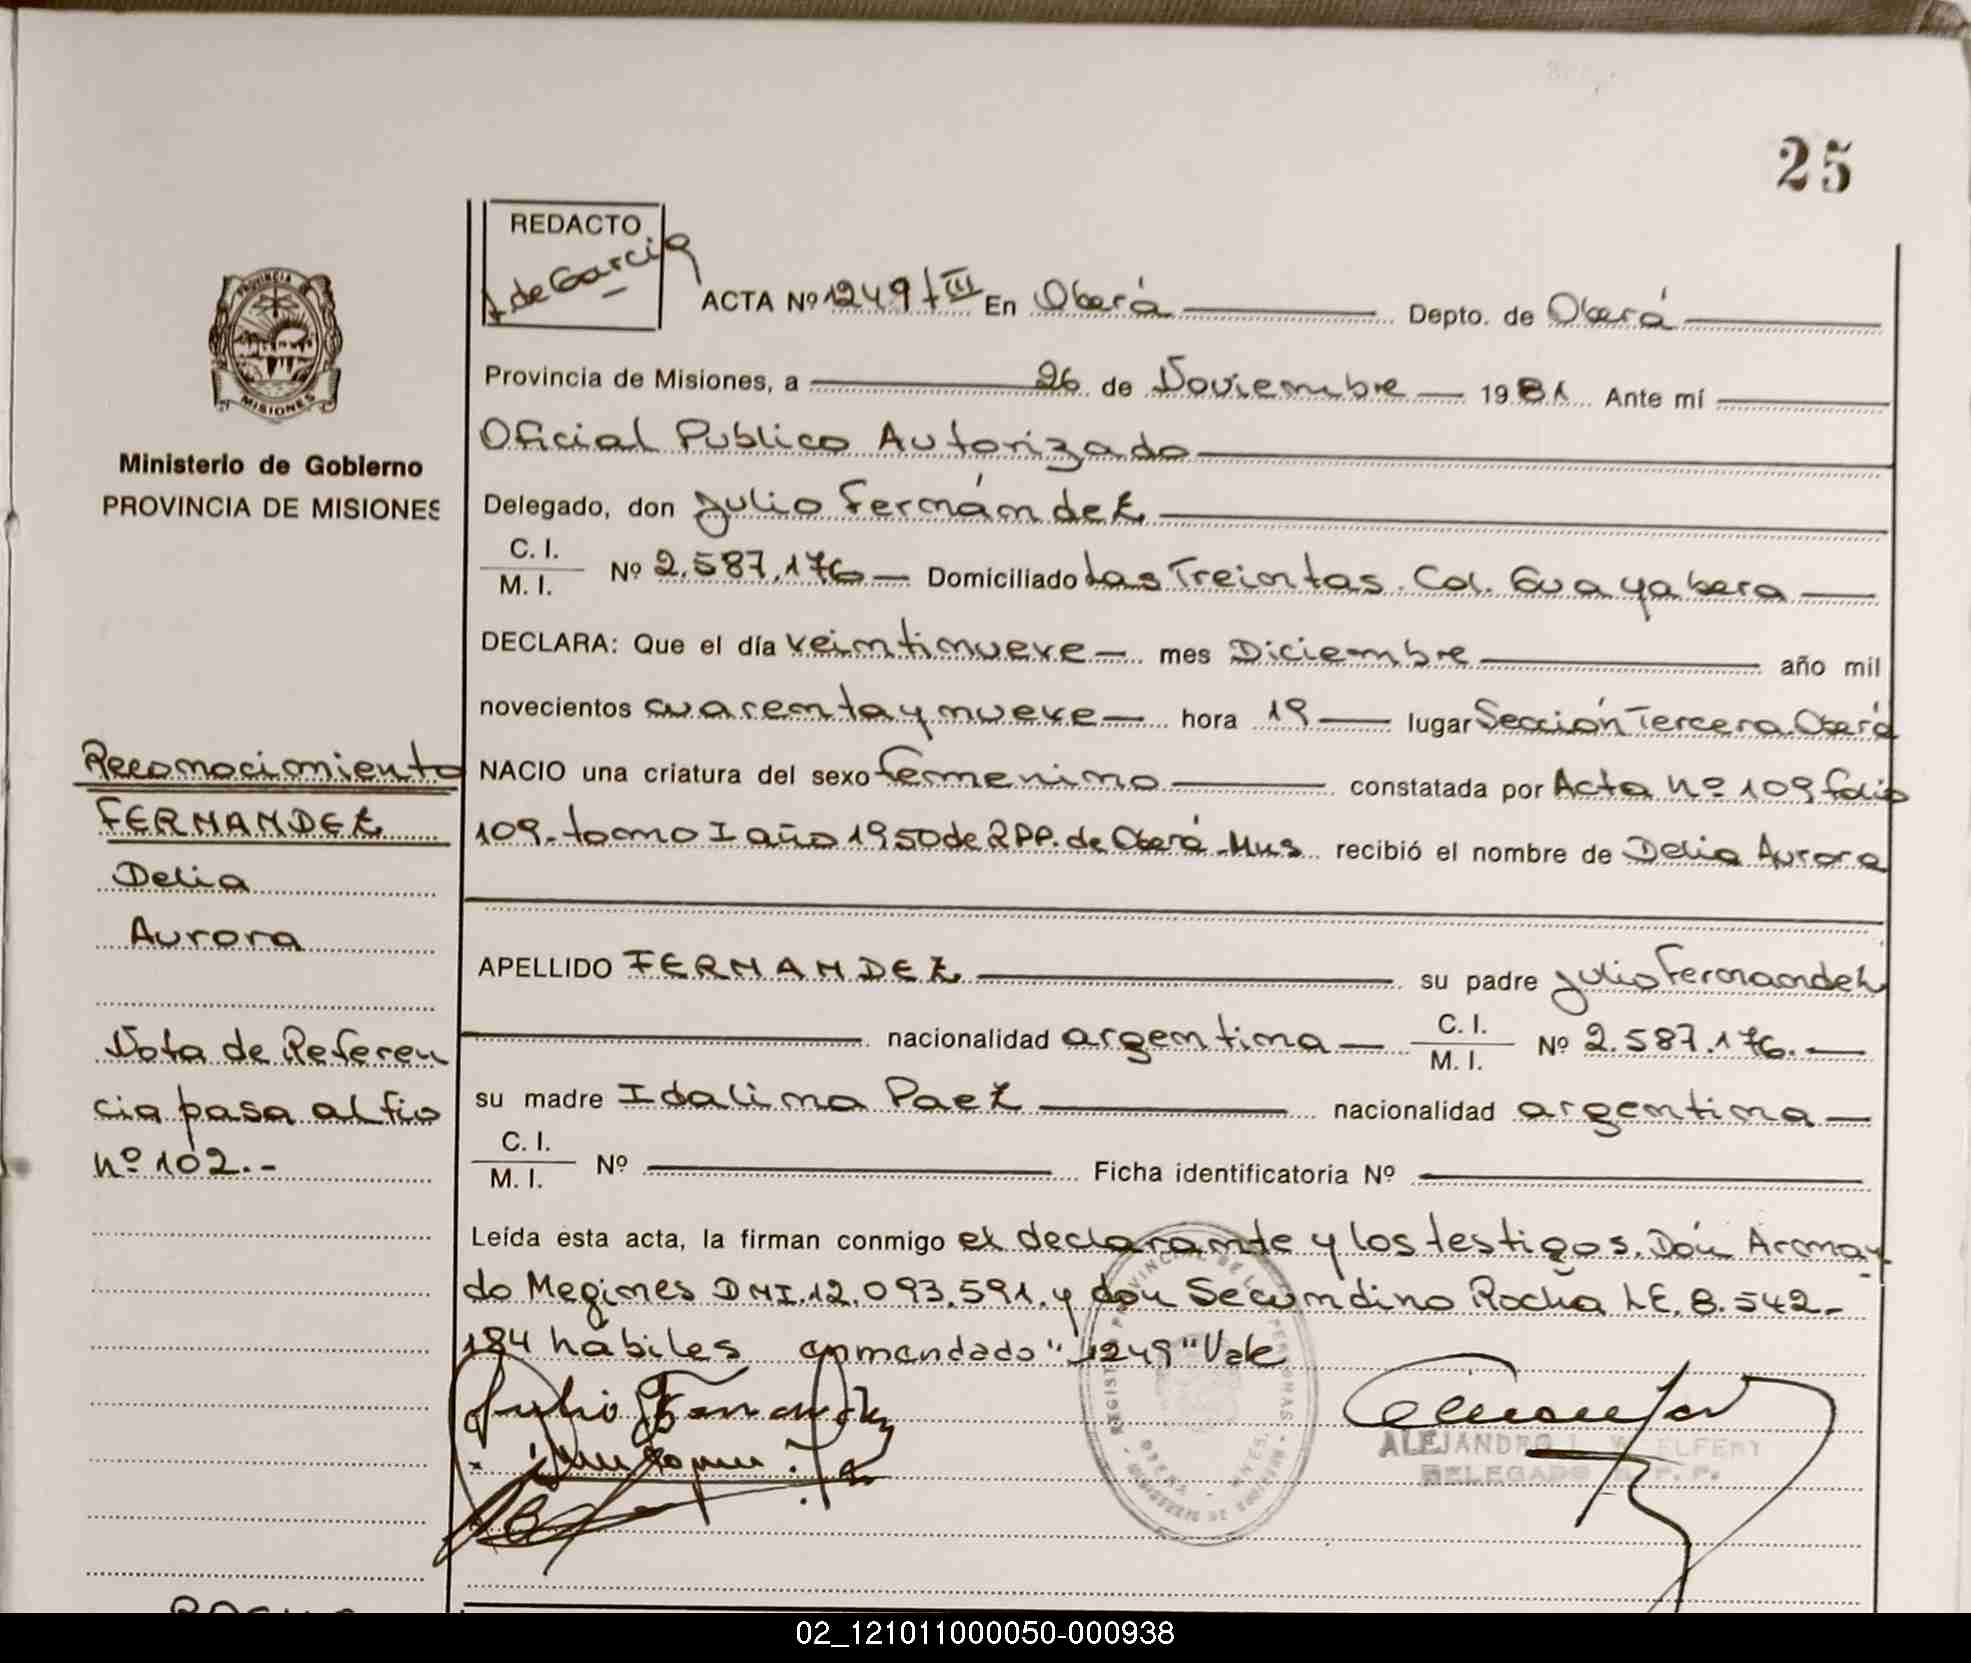 25
REDACTO
de Garcia
ACTA Nº 1249 tIII En Oberá Depto. de Oberá
PROVINCIA
MISIONES
Provincia de Misiones, a 26 de Noviembre 1981 Ante mí
Oficial Publico Autorizado
Ministerio de Gobierno
PROVINCIA DE MISIONES
Delegado, don Julio Fernández
C. I.
M. I. Nº 2.587.176 Domiciliado Las Treintas. Col. Guayabera
DECLARA: Que el día veintinueve mes Diciembre año mil
novecientos cuarenta y nueve hora 19 lugar Sección Tercera. Oberá
NACIO una criatura del sexo femenino constatada por Acta Nº 109 folio
109. tomo I año 1950 de RPP. de Oberá. Mns recibió el nombre de Delia Aurora
APELLIDO FERNANDEZ su padre Julio Fernandez
nacionalidad argentina C. I.
M. I. Nº 2.587.176.
su madre Idalina Paez nacionalidad argentina
C. I.
M. I. Nº Ficha identificatoria Nº
Leída esta acta, la firman conmigo el declarante y los testigos. Don Arman
do Megines DNI. 12.093.591. y don Secundino Rocha LE. 8.542.
184 habiles enmendado "1249" Vale
Reconocimiento
FERNANDEZ
Delia
Aurora
Nota de Referen
cia pasa al fio
nº 102.-
Julio Fernandez
ALEJANDRO
DELEGADO R. P. P.
02_121011000050-000938